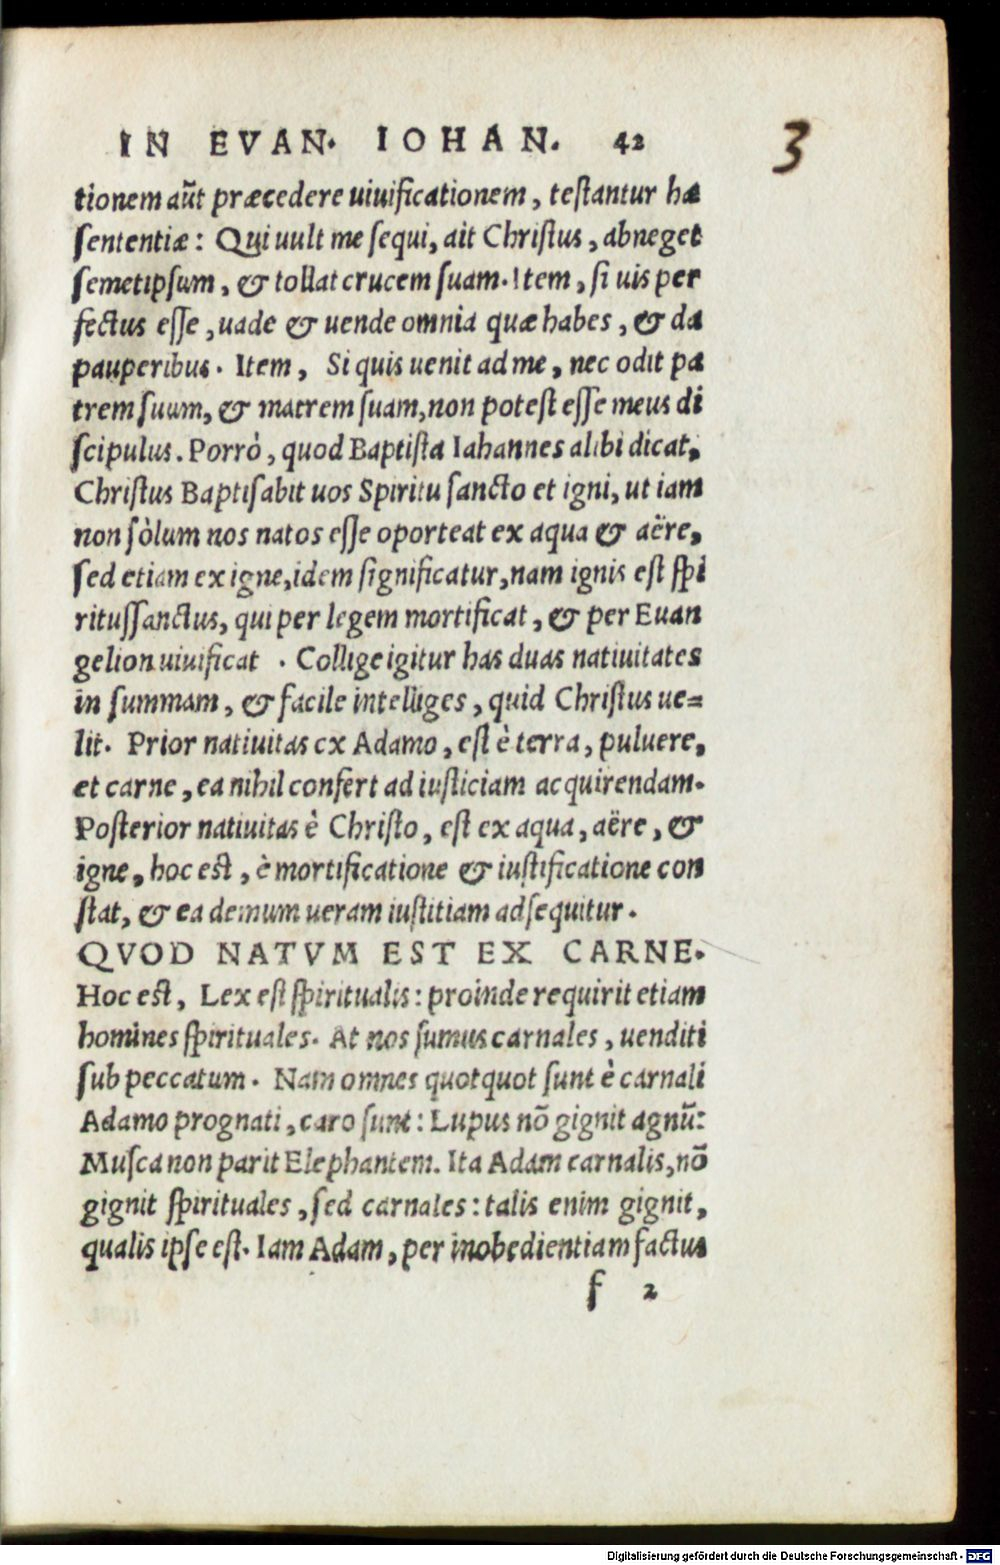 IN EVAN. IOHAN. 42
3
tionem aũt præcedere uiuificationem, testantur hæ
sententiæ: Qui uult me sequi, ait Christus, abneget
semetipsum, & tollat crucem suam. Item, si uis per
fectus esse, uade & uende omnia quæ habes, & da
pauperibus. Item, Si quis uenit ad me, nec odit pa
trem suum, & matrem suam, non potest esse meus di
scipulus. Porrò, quod Baptista Iahannes alibi dicat,
Christus Baptisabit uos Spiritu sancto et igni, ut iam
non sòlum nos natos esse oporteat ex aqua & aëre,
sed etiam ex igne, idem significatur, nam ignis est spi
ritussanctus, qui per legem mortificat, & per Euan
gelion uiuificat . Collige igitur has duas natiuitates
in summam, & facile intelliges, quid Christus ue=
lit. Prior natiuitas ex Adamo, est è terra, puluere,
et carne, ea nihil confert ad iusticiam acquirendam.
Posterior natiuitas è Christo, est ex aqua, aëre, &
igne, hoc est, è mortificatione & iustificatione con
stat, & ea demum ueram iustitiam adsequitur.
QVOD NATVM EST EX CARNE.
Hoc est, Lex est spiritualis: proinde requirit etiam
homines spirituales. At nos sumus carnales, uenditi
sub peccatum. Nam omnes quotquot sunt è carnali
Adamo prognati, caro sunt: Lupus nõ gignit agnũ:
Musca non parit Elephantem. Ita Adam carnalis, nõ
gignit spirituales, sed carnales: talis enim gignit,
qualis ipse est. Iam Adam, per inobedientiam factus
f 2
Digitalisierung gefördert durch die Deutsche Forschungsgemeinschaft - DFG